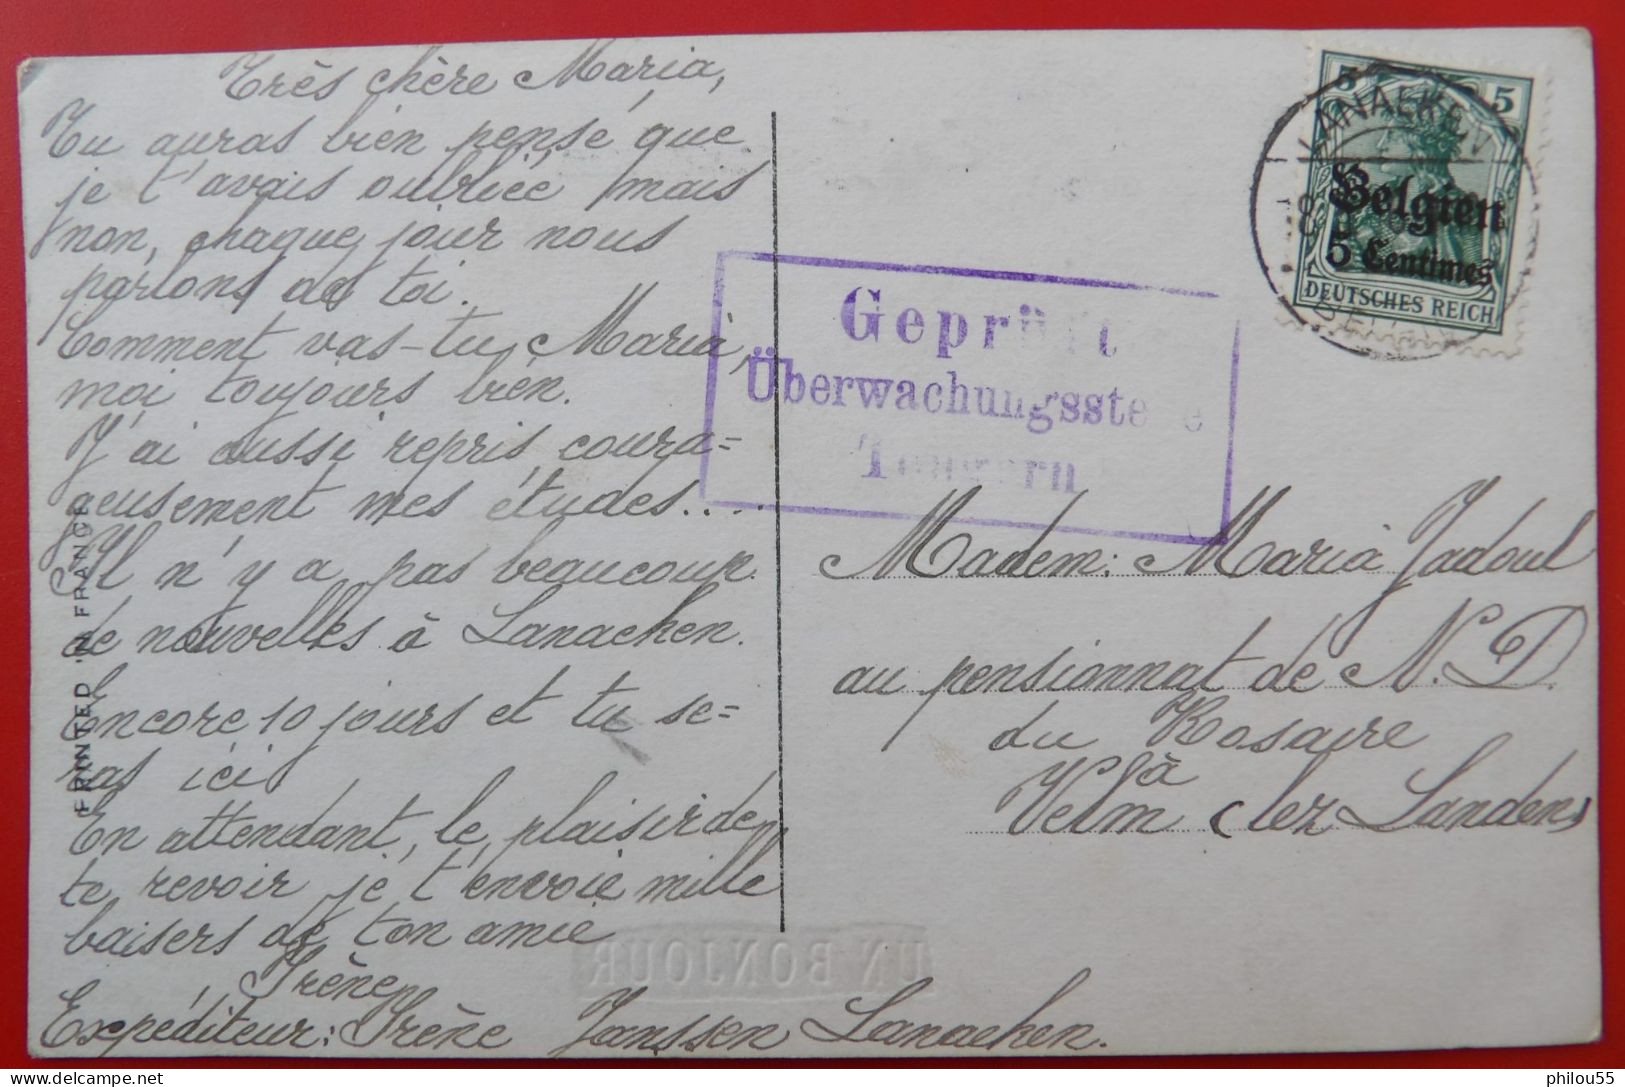 Très chère Maria,
Tu auras bien pensé que
je t'avais oubliée mais
non, chaque jour nous
parlons de toi.
Comment vas-tu Maria,
moi toujours bien.
J'ai aussi repris coura=
geusement mes études....
Il n'y a pas beaucoup
de nouvelles à Lanaeken.
Encore 10 jours et tu se=
ras ici
En attendant, le plaisir de
te revoir je t'envoie mille
baisers de ton amie
Irène
Expéditeur: Irène Janssen Lanaeken.
PRINTED IN FRANCE
UN BONJOUR
Geprüft
Überwachungsstelle
5 5
Belgien
5 Centimes
DEUTSCHES REICH
LANAEKEN
Madem: Maria Jadoul
au pensionnat de N. D.
du Rosaire
à
Velm (lez Landen)
philou55
delcampe.net